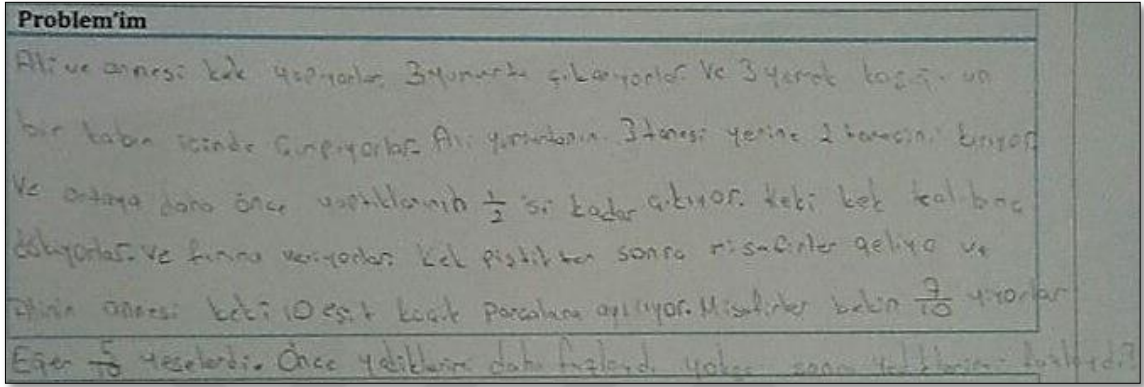 Problem'im
Ali ve annesi kek yapıyorlar. 3 yumurta çıkarıyorlar. Ve 3 yemek kaşığı un
bir kabın içinde Çırpıyorlar. Ali yumurtanın 3 tanesi yerine 2 tanesini kırıyor
Ve ortaya daha önce yaptıklarının 1/2 'si kadar çıkıyor. Keki kek kalıbına
döküyorlar. ve fırına veriyorlar. Kek piştikten sonra misafirler geliyo ve
annesi keki 10 eşit küçük parçalara ayırıyor. Misafirler kekin 9/10 yiyorlar
Eğer 5/10 yeselerdi. Önce yedikleri daha fazlaydı yoksa sonra yedikleri